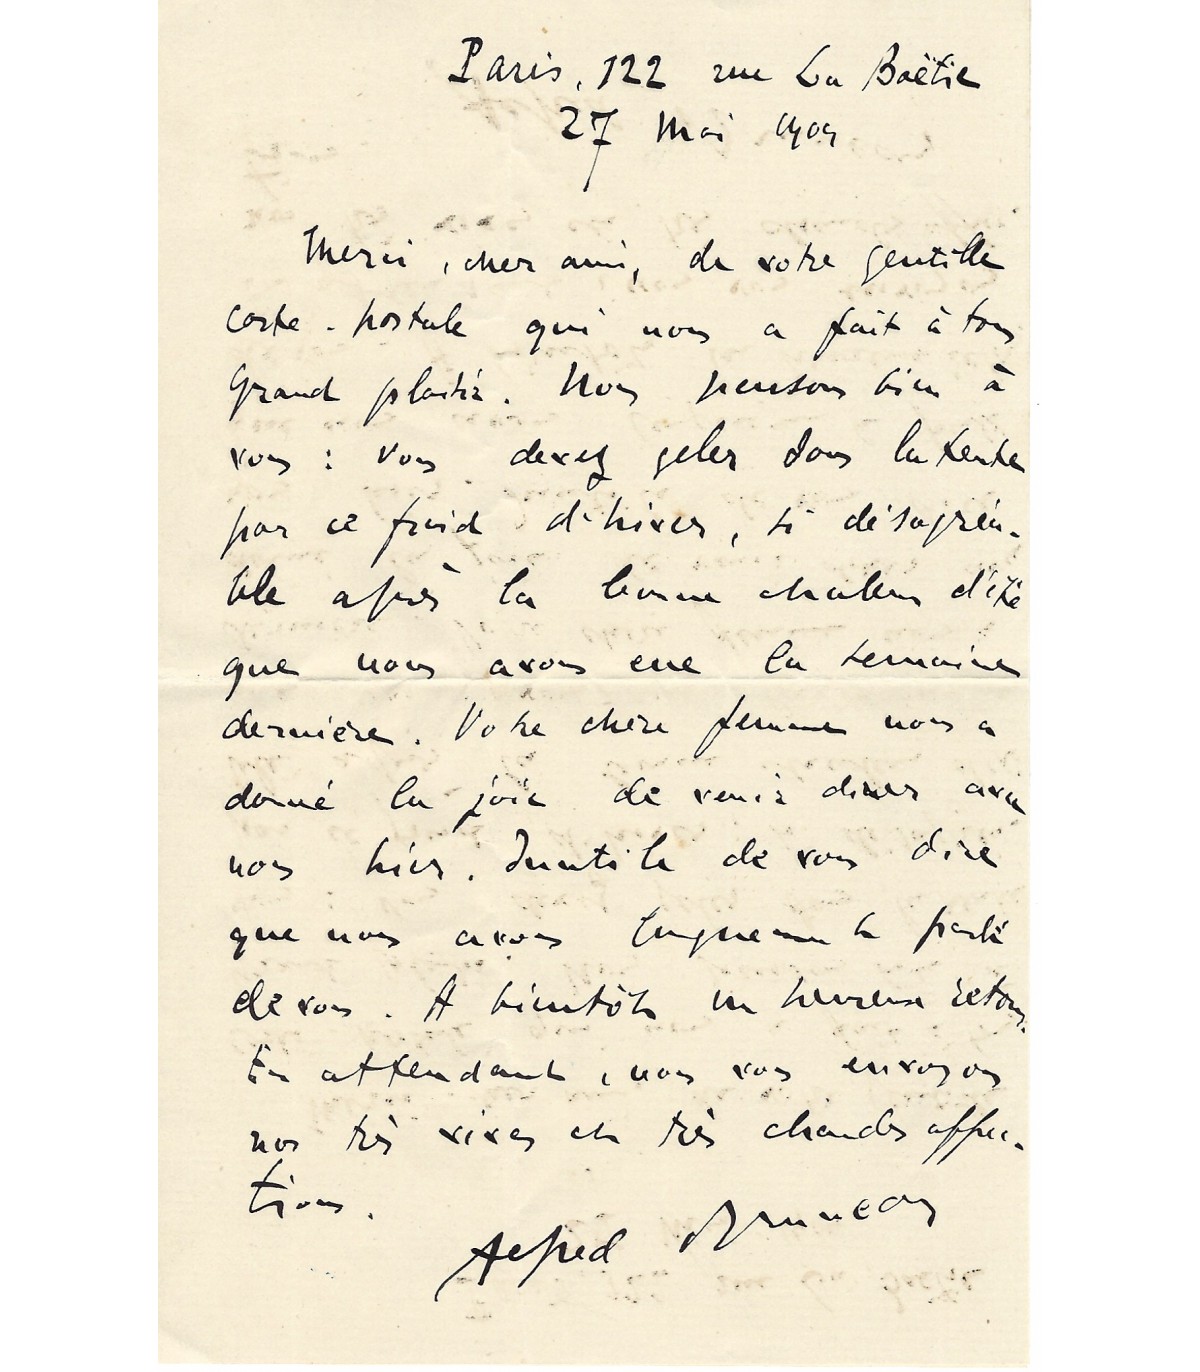 Paris, 122 rue La Boëtie
27 Mai 1909
Merci, cher ami, de votre gentille
carte-postale qui nous a fait à tous
grand plaisir. Nous pensons bien à
vous : vous devez geler dans la tente
par ce froid d'hiver, si désagréa-
ble après la bonne chaleur d'été
que nous avons eue la semaine
dernière. Votre chère femme nous a
donné la joie de venir diner avec
nous hier. Inutile de vous dire
que nous avons longuement parlé
de vous. A bientôt un heureux retour.
En attendant, nous vous envoyons
nos très vives et très chaudes affec-
tions.
Alfred Bruneau